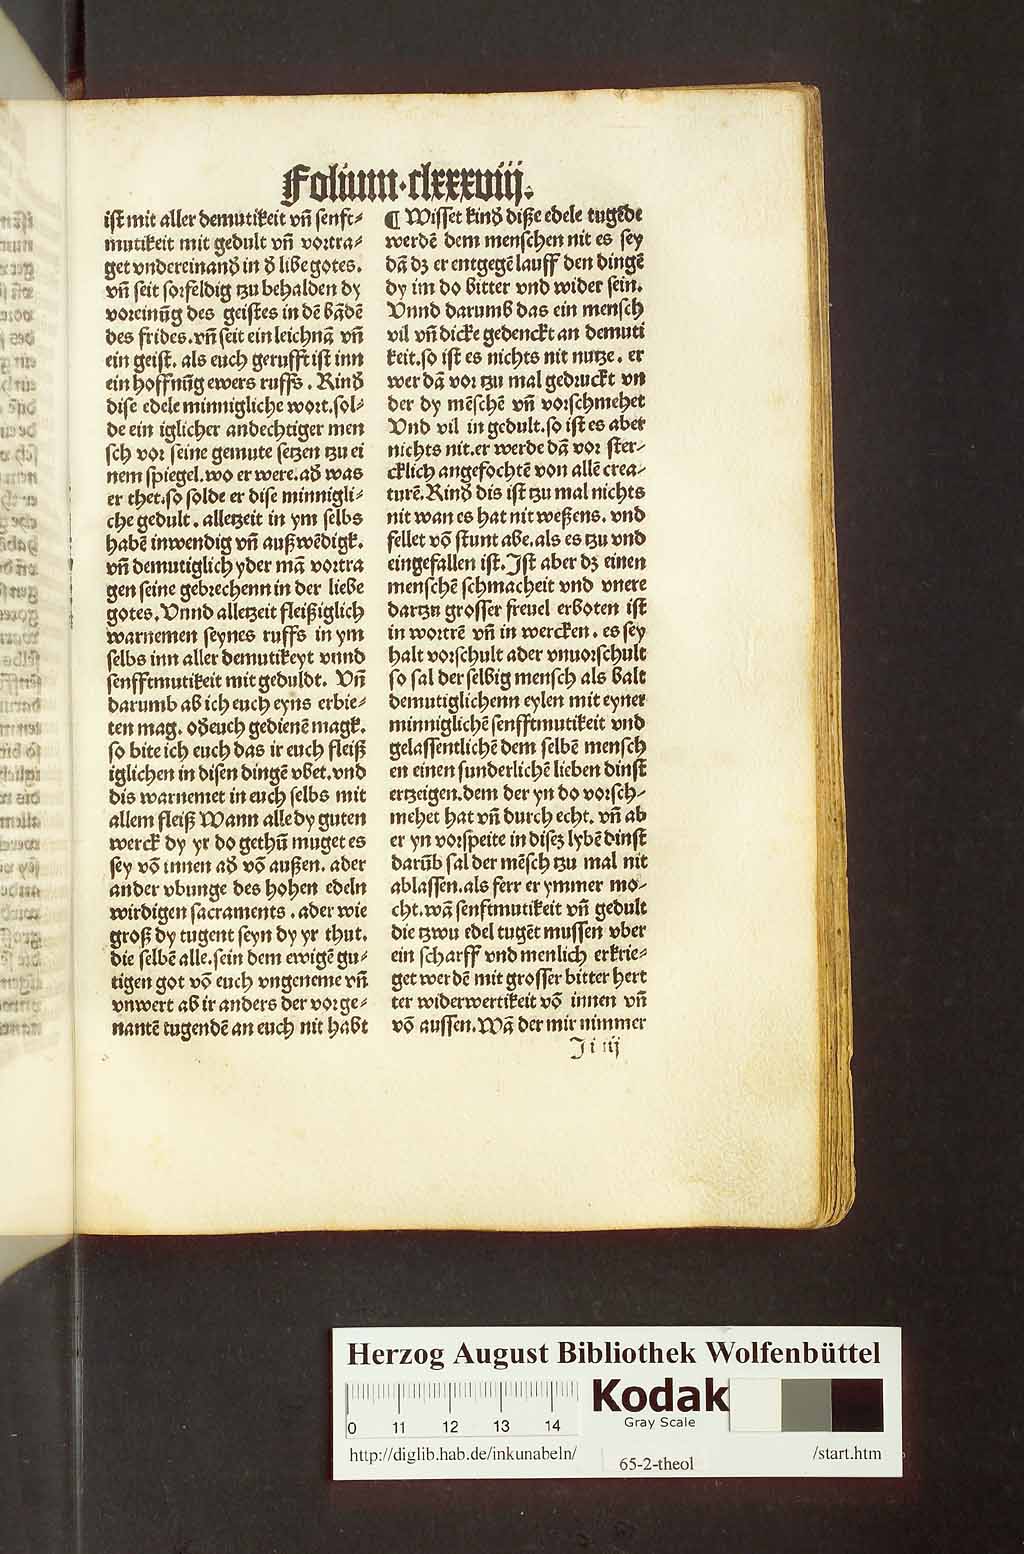 Folium·clxxxviij.
ist mit aller demutikeit vñ senft⸗
mutikeit mit gedult vñ vortra⸗
get vndereinand̛ in d̛ libe gotes.
vñ seit sorfeldig tzu behalden dy
voreinũg des geistes in dẽ bãdẽ
des frides. vñ seit ein leichnã vñ
ein geist. als euch gerufft ist inn
ein hoffnũg ewers ruffs. Kind̛
dise edele minnigliche wort. sol⸗
de ein iglicher andechtiger men
sch vor seine gemute setzen tzu ei
nem spiegel. wo er were. ad̛ was
er thet. so solde er dise minnigli⸗
che gedult. alletzeit in ym selbs
habẽ inwendig vñ außwẽdigk.
vñ demutiglich yder mã vortra
gen seine gebrechenn in der liebe
gotes. Vnnd alletzeit fleißiglich
warnemen seynes ruffs in ym
selbs inn aller demutikeyt vnnd
senfftmutikeit mit geduldt. Vñ
darumb ab ich euch eyns erbie⸗
ten mag. od̛ euch gedienẽ magk.
so bite ich euch das ir euch fleiß
iglichen in disen dingẽ vbet. vnd
dis warnemet in euch selbs mit
allem fleiß Wann alle dy guten
werck dy yr do gethũ muget es
sey võ innen ad̛ võ außen. ader
ander vbunge des hohen edeln
wirdigen sacraments. ader wie
groß dy tugent seyn dy yr thut.
die selbẽ alle. sein dem ewigẽ gu⸗
tigen got võ euch vngeneme vñ
vnwert ab ir anders der vorge⸗
nantẽ tugendẽ an euch nit habt
¶ Wisset kind̛ diße edele tugẽde
werdẽ dem menschen nit es sey
dã dz er entgegẽ lauff den dingẽ
dy im do bitter vnd wider sein.
Vnnd darumb das ein mensch
vil vñ dicke gedenckt an demuti
keit. so ist es nichts nit nutze. er
wer dã vor tzu mal gedruckt vn
der dy mẽschẽ vñ vorschmehet
Vnd vil in gedult. so ist es aber
nichts nit. er werde dã vor ster⸗
cklich angefochtẽ von allẽ crea⸗
turẽ. Kind̛ dis ist tzu mal nichts
nit wan es hat nit weßens. vnd
fellet võ stunt abe. als es tzu vnd
eingefallen ist. Ist aber dz einen
menschẽ schmacheit vnd vnere
dartzu grosser freuel erboten ist
in wortrẽ vñ in wercken. es sey
halt vorschult ader vnuorschult
so sal der selbig mensch als balt
demutiglichenn eylen mit eyner
minniglichẽ senfftmutikeit vnd
gelassentlichẽ dem selbẽ mensch
en einen sunderlichẽ lieben dinst
ertzeigen. dem der yn do vorsch⸗
mehet hat vñ durch echt. vñ ab
er yn vorspeite in disez lybẽ dinst
darũb sal der mẽsch tzu mal nit
ablassen. als ferr er ymmer mo⸗
cht. wã senftmutikeit vñ gedult
die tzwu edel tugẽt mussen vber
ein scharff vnd menlich erkrie⸗
get werdẽ mit grosser bitter hert
ter widerwertikeit võ innen vñ
võ aussen. Wã der mir nimmer
Ii iij
Herzog August Bibliothek Wolfenbüttel
0 11 12 13 14
Kodak
Gray Scale
http://diglib.hab.de/inkunabeln/
65-2-theol
/start.htm